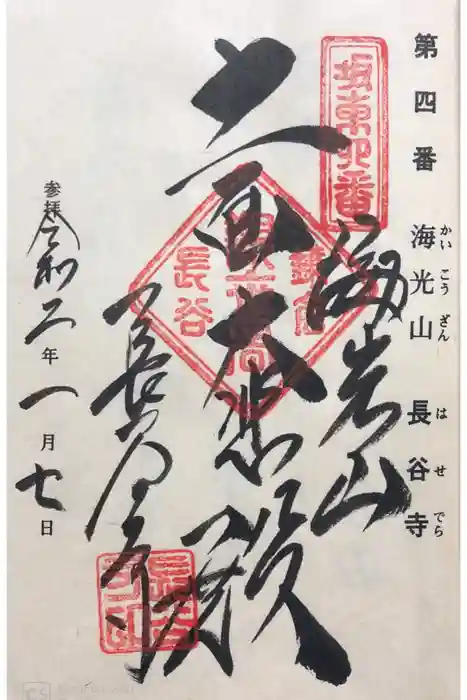 第四番 海光山 長谷寺
かいこうざん はせでら
坂東四番
海光山
十一面大悲殿
鎌倉
長谷
長谷寺
参拝 令和二年一月七日